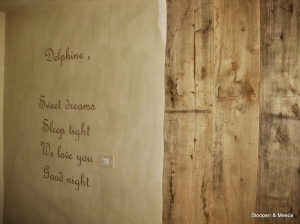 Delphine ,
Sweet dreams
Sleep tight
We love you
Good night
Stoopen & Meeûs